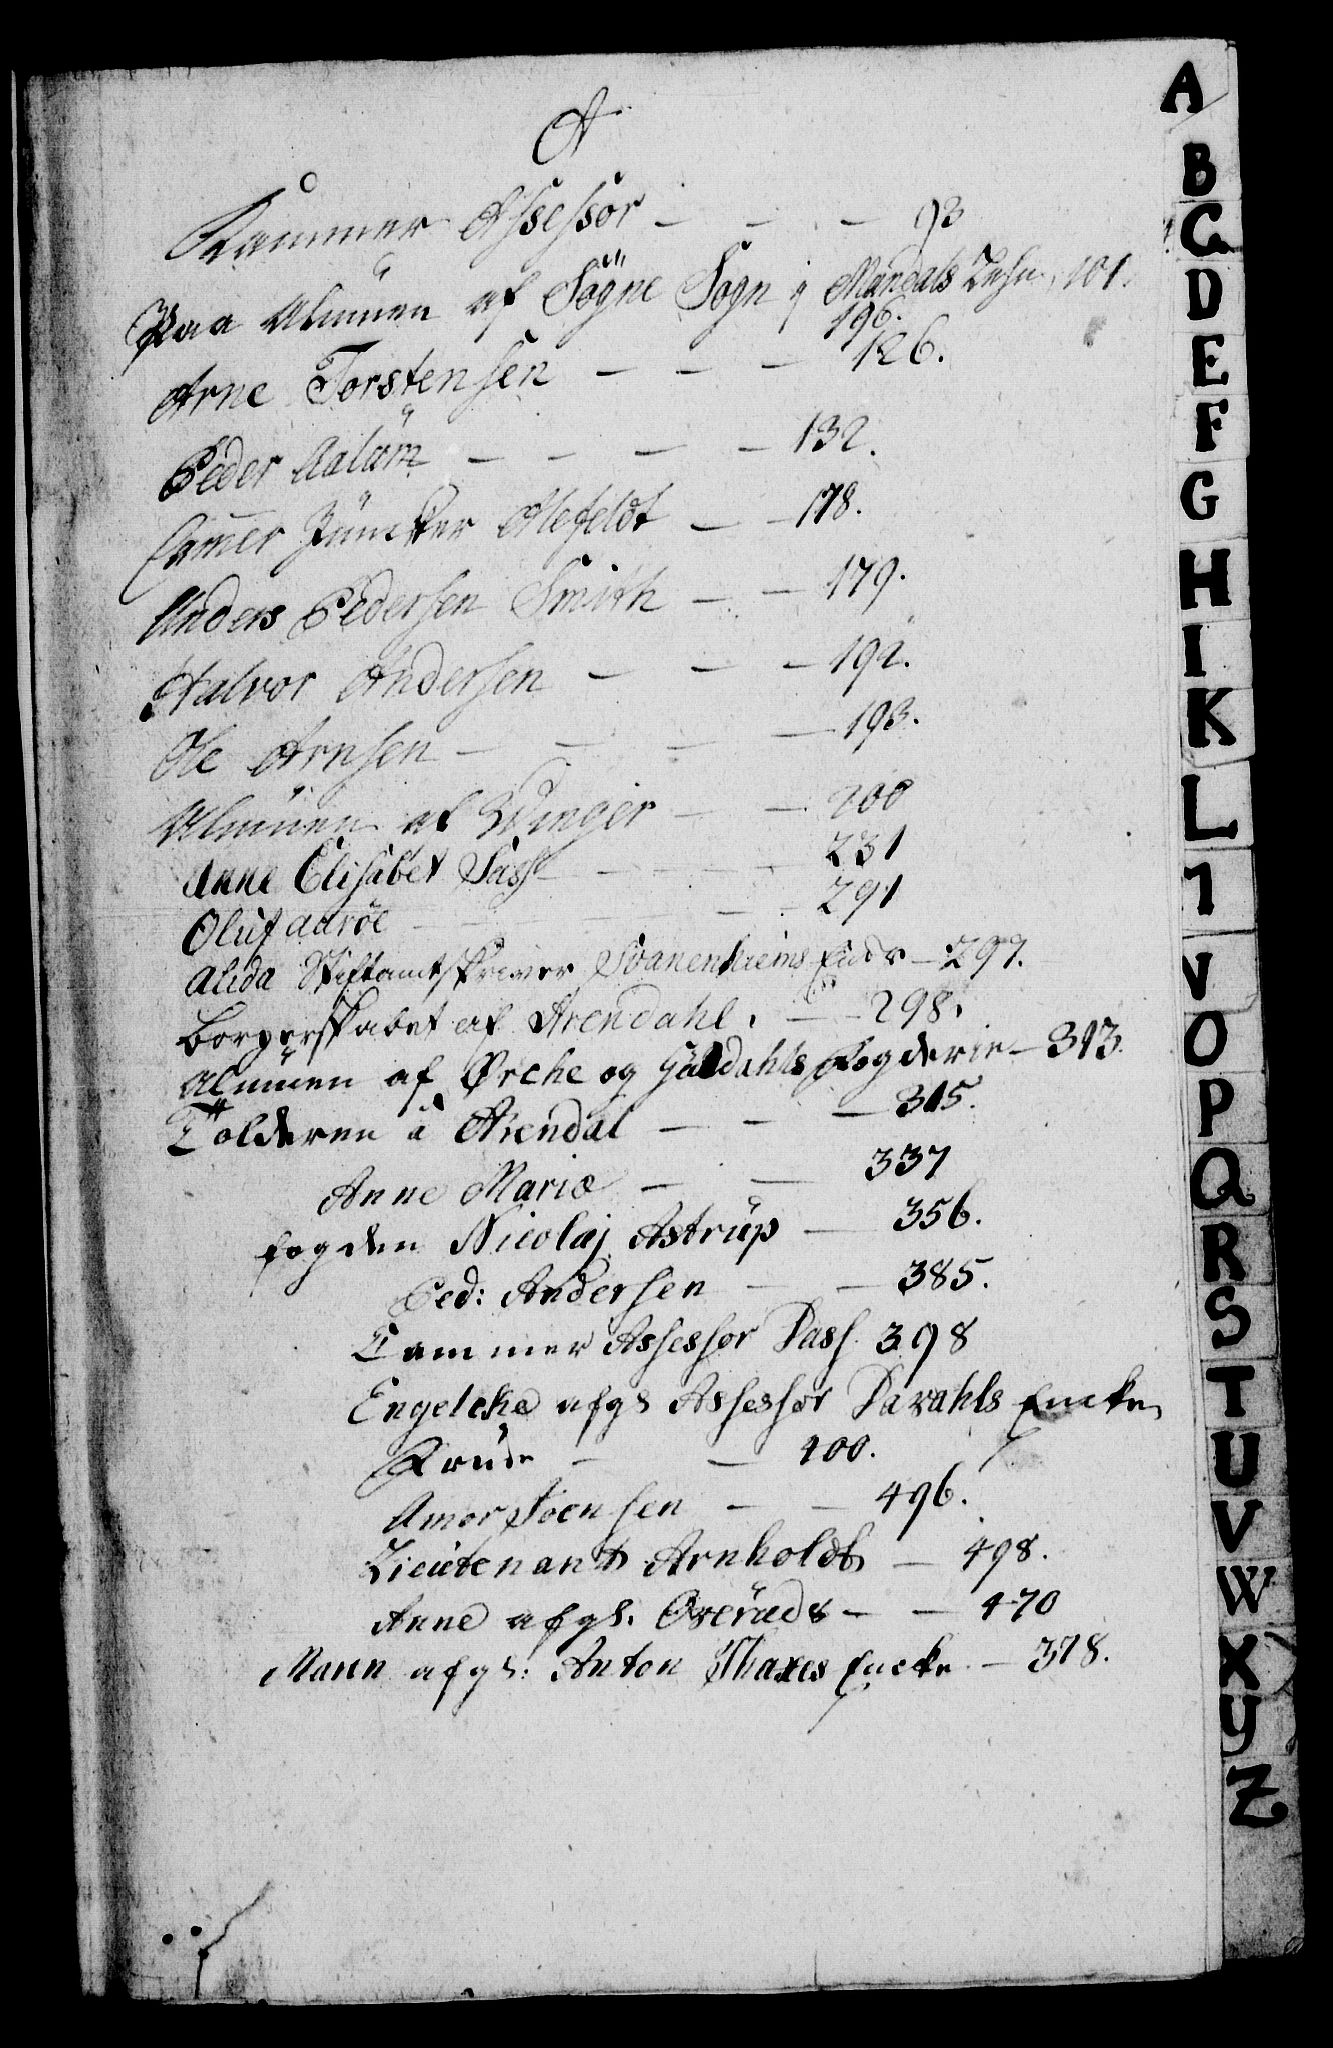 A
Kammer Assessor - - - 93
Paa Almuen af Sögne Sogn i Mandals Lehn, 101.
196.
Arne Torstensen - - - 126.
Peder Aalüm - - - - 132.
Camer Jüncker Alefeldt - - 178.
Anders Pedersen Smith - - 179.
Halvor Andersen - - - 192.
Ole Arnsen - - - - 193.
Almuen af Winger - - 200
Anne Elisabet Sass - - - - 231
Oluf Aaröe - - - - 291
Alida Stiftamtskriver Svanenhielms - 297.
Borgerskabet af Arendahl. - - 298.
Almuen af Ørche og Guldahls Fogderie - 313.
Tolderen i Arendal - - - 315.
Anne Marie - - 337
Fogden Nicolaj Astrup - 356.
Ped: Andersen - - 385.
Cammer Assessor Dass 398
Engelche afgl Assessor Encke
Frue - - 400.
Amor Joensen - - 496.
Lieutenant Arnholdt - 498.
Anne afgl. - - 470
Maren afgl: Anton Encke - 378.
A
B
C
D
E
F
G
H
I
K
L
O
P
Q
R
S
T
U
V
W
X
Y
Z